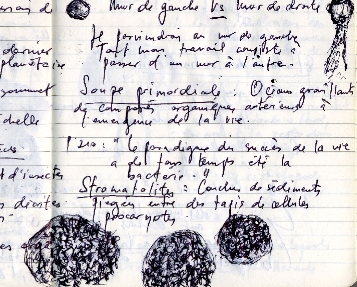 Mur de gauche Vs Mur de droite
Je parviendrai au mur de gauche
tout mon travail consiste à
dernier
planétaire
passer d'un mur à l'autre.
Soupe primordiale : Océans
de composés organiques antérieurs à
l'émergence de la vie.
P 210 : "le paradigme du succès de la vie
a de tous temps été la
bactérie."
d'insectes
Stromatolites : Couches de sédiments
droites
piégées entre des tapis de cellules
procaryotes.